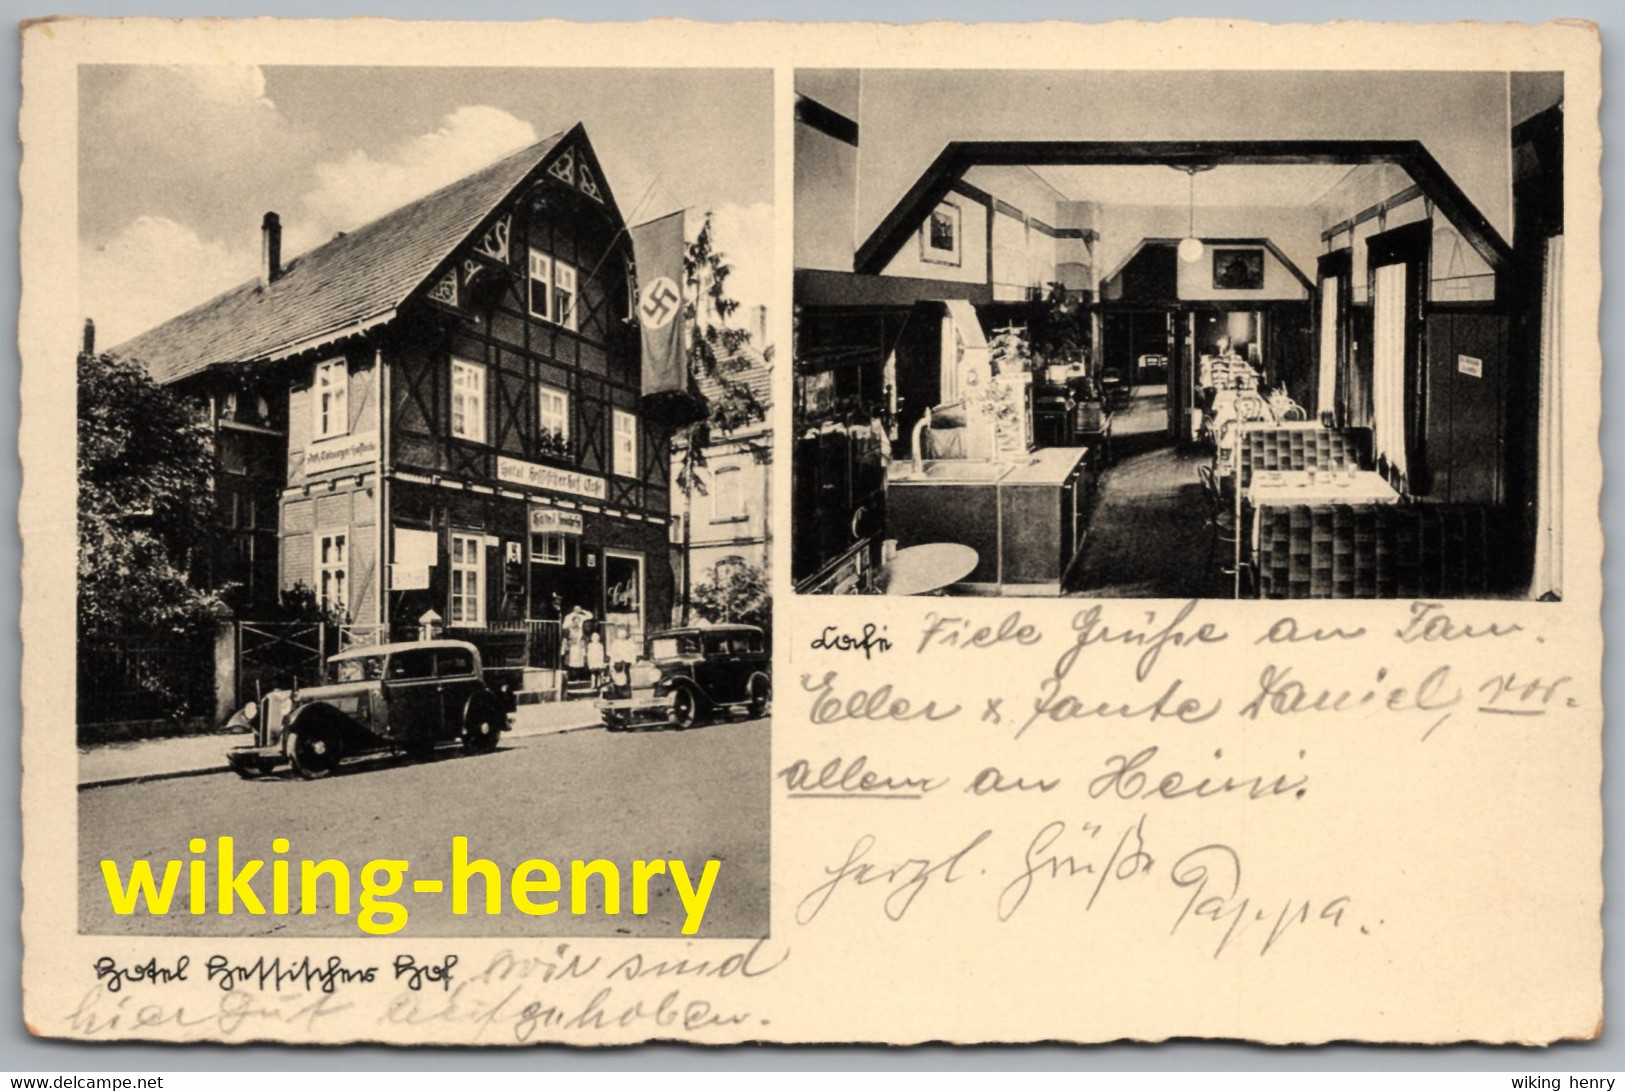 Hotel Hessischer Hof Café
Hotel
Café
wiking-henry
Hotel Hessischer Hof, wir sind
hier gut aufgehoben.
Café Viele Grüße an Fam.
Eller & Tante Daniel, vor
allem an Heini.
Herzl. Grüße
Pappa.
www.delcampe.net
wiking henry